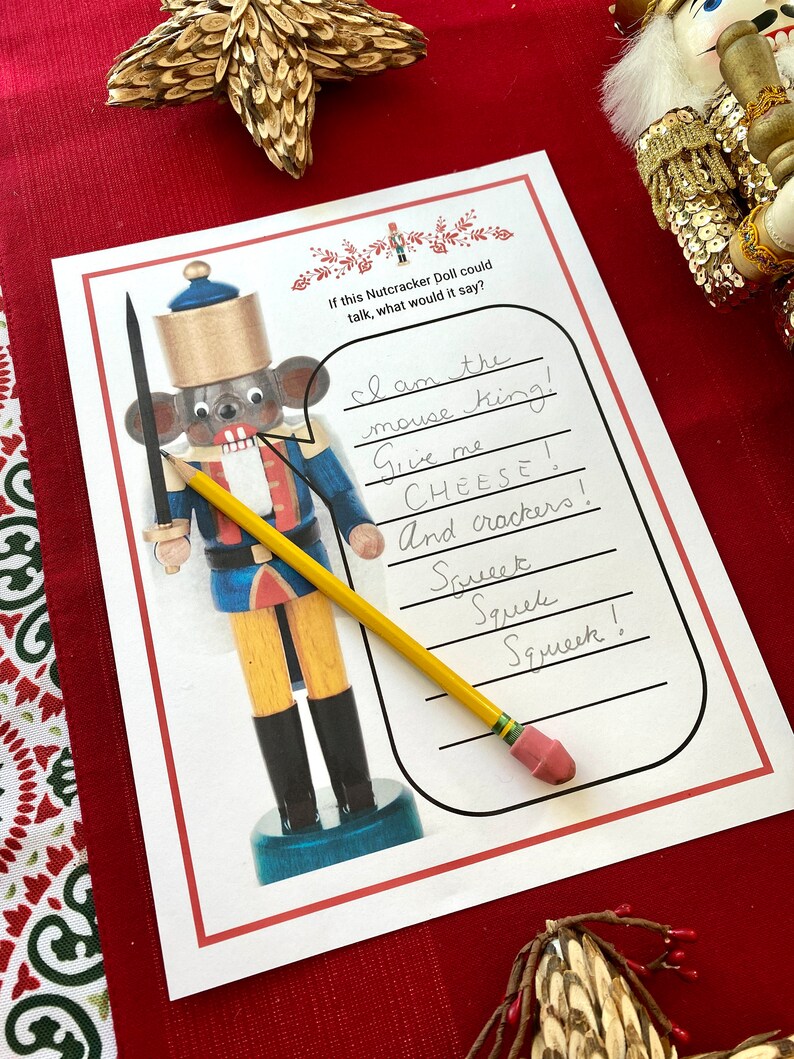 If this Nutcracker Doll could
talk, what would it say?
I am the
mouse king!
Give me
CHEESE!
And crackers!
Squeek
Squek
Squeek!